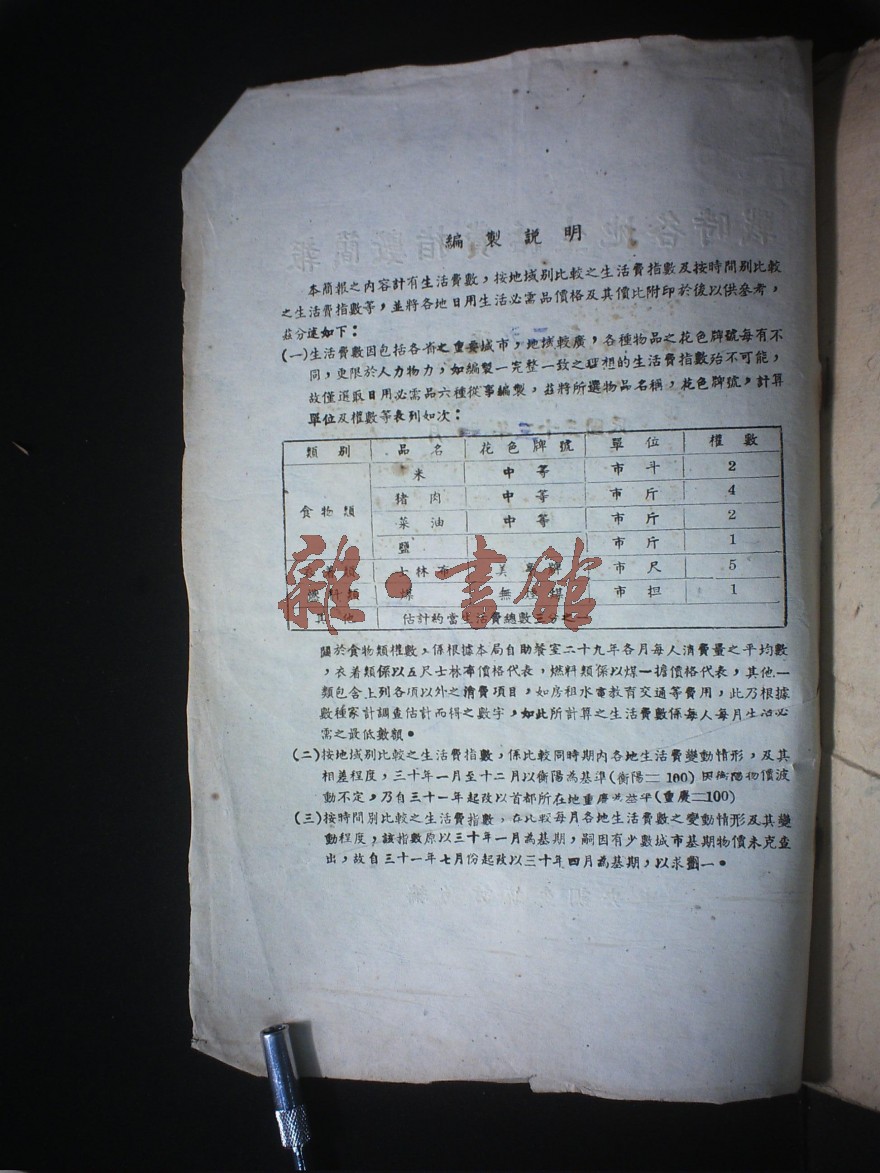 編製説明
本簡報之内容計有生活費數，按地域别比較之生活費指數及按時間别比較
之生活費指數等，並將各地日用生活必需品價格及其價比附印於後以供參考，
茲分述如下：
(一)生活費數因包括各省之重要城市，地域較廣，各種物品之花色牌號每有不
同，更限於人力物力，如編製一完整一致之理想的生活費指數殆不可能，
故僅選取日用必需品六種從事編製，茲將所選物品名稱，花色牌號，計算
單位及權數等表列如次：
類别 品名 花色牌號 單位 權數
食物類 米 中等 市斗 2
猪肉 中等 市斤 4
菜油 中等 市斤 2
鹽 市斤 1
士林布 市尺 5
燃料類 煤 無煙煤 市担 1
其他 估計約當生活費總數三分之一
雜·書館
關於食物類權數，係根據本局自助餐室二十九年各月每人消費量之平均數
，衣着類係以五尺士林布價格代表，燃料類係以煤一擔價格代表，其他一
類包含上列各項以外之消費項目，如房租水電教育交通等費用，此乃根據
數種家計調查估計而得之數字，如此所計算之生活費數係每人每月生活必
需之最低數額。
(二)按地域别比較之生活費指數，係比較同時期内各地生活費變動情形，及其
相差程度，三十年一月至十二月以衡陽為基準(衡陽＝100)因衡陽物價波
動不定，乃自三十一年起改以首都所在地重慶為基準(重慶＝100)
(三)按時間别比較之生活費指數，在比較每月各地生活費數之變動情形及其變
動程度，該指數原以三十年一月為基期，嗣因有少數城市基期物價未克查
出，故自三十一年七月份起改以三十年四月為基期，以求劃一。